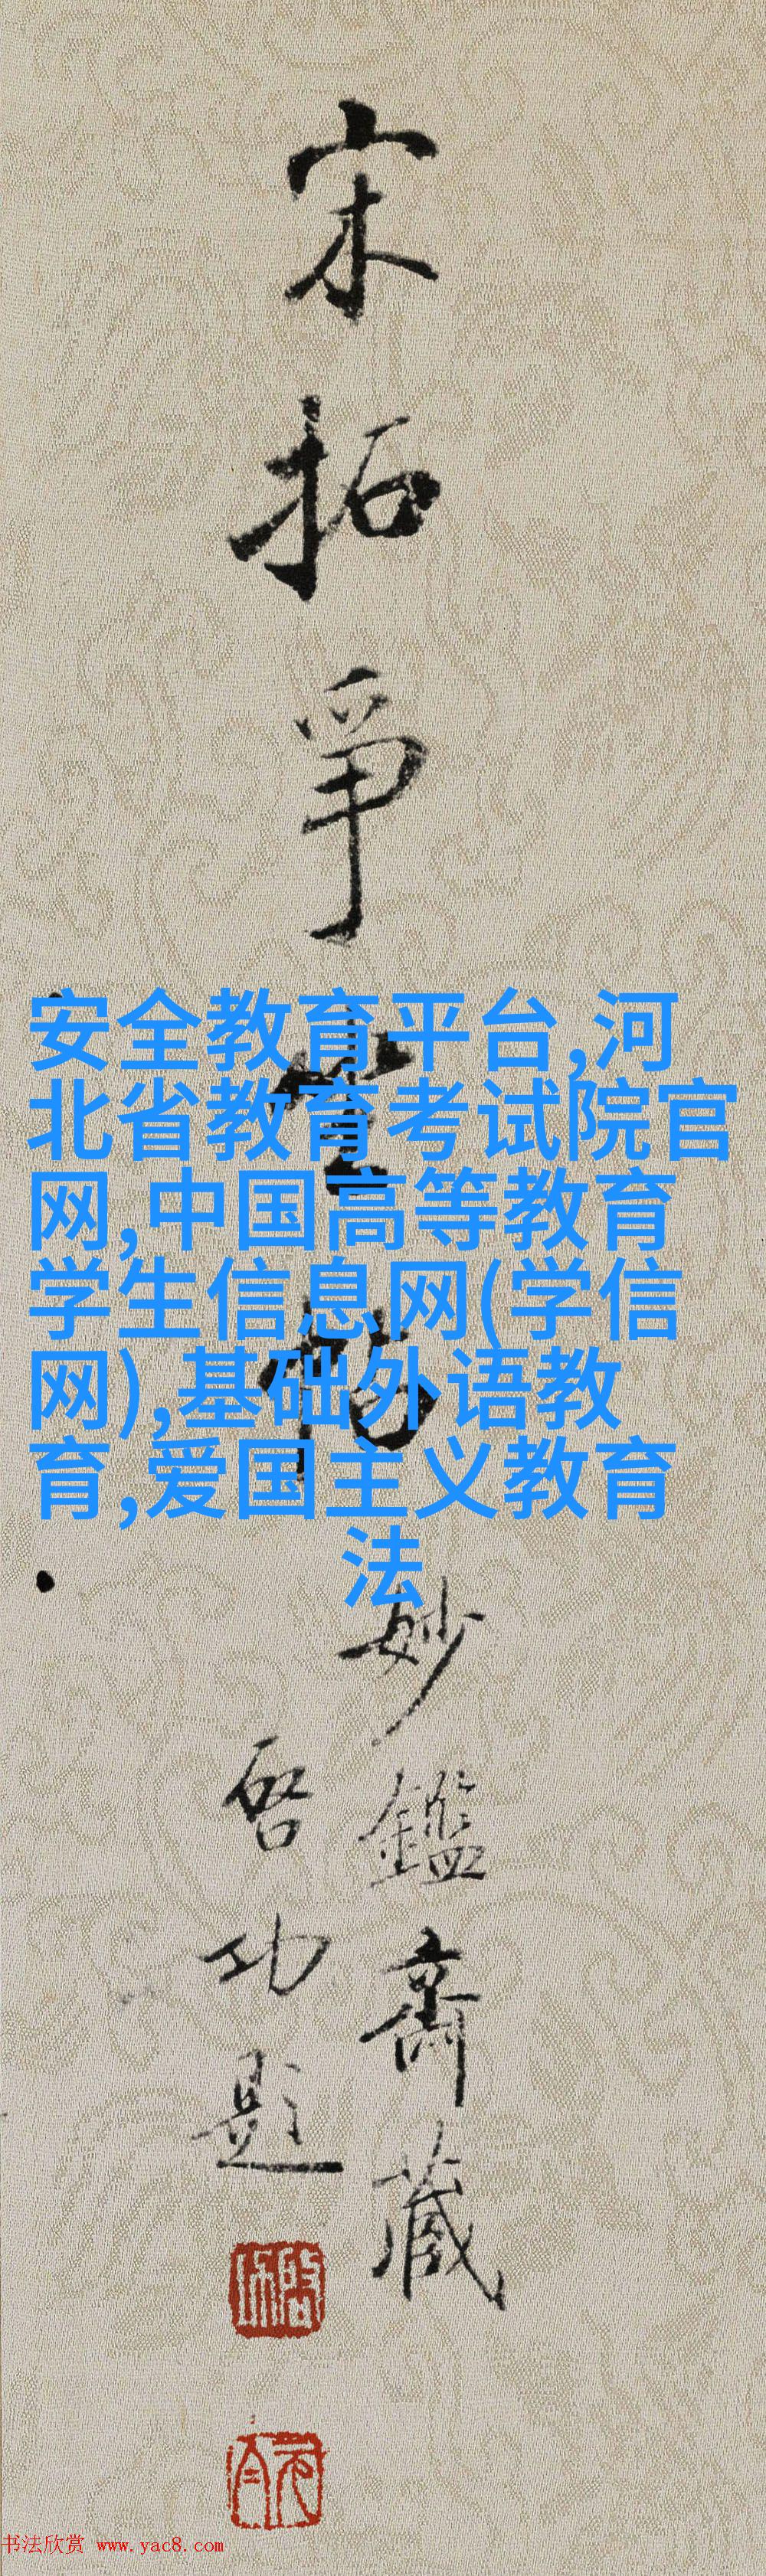 宋拓爭
安全教育平台,河
北省教育考试院官
网,中国高等教育
学生信息网(学信
网),基础外语教
育,爱国主义教育
法
妙鑑齋藏
启功题
书法欣赏 www.yac8.com